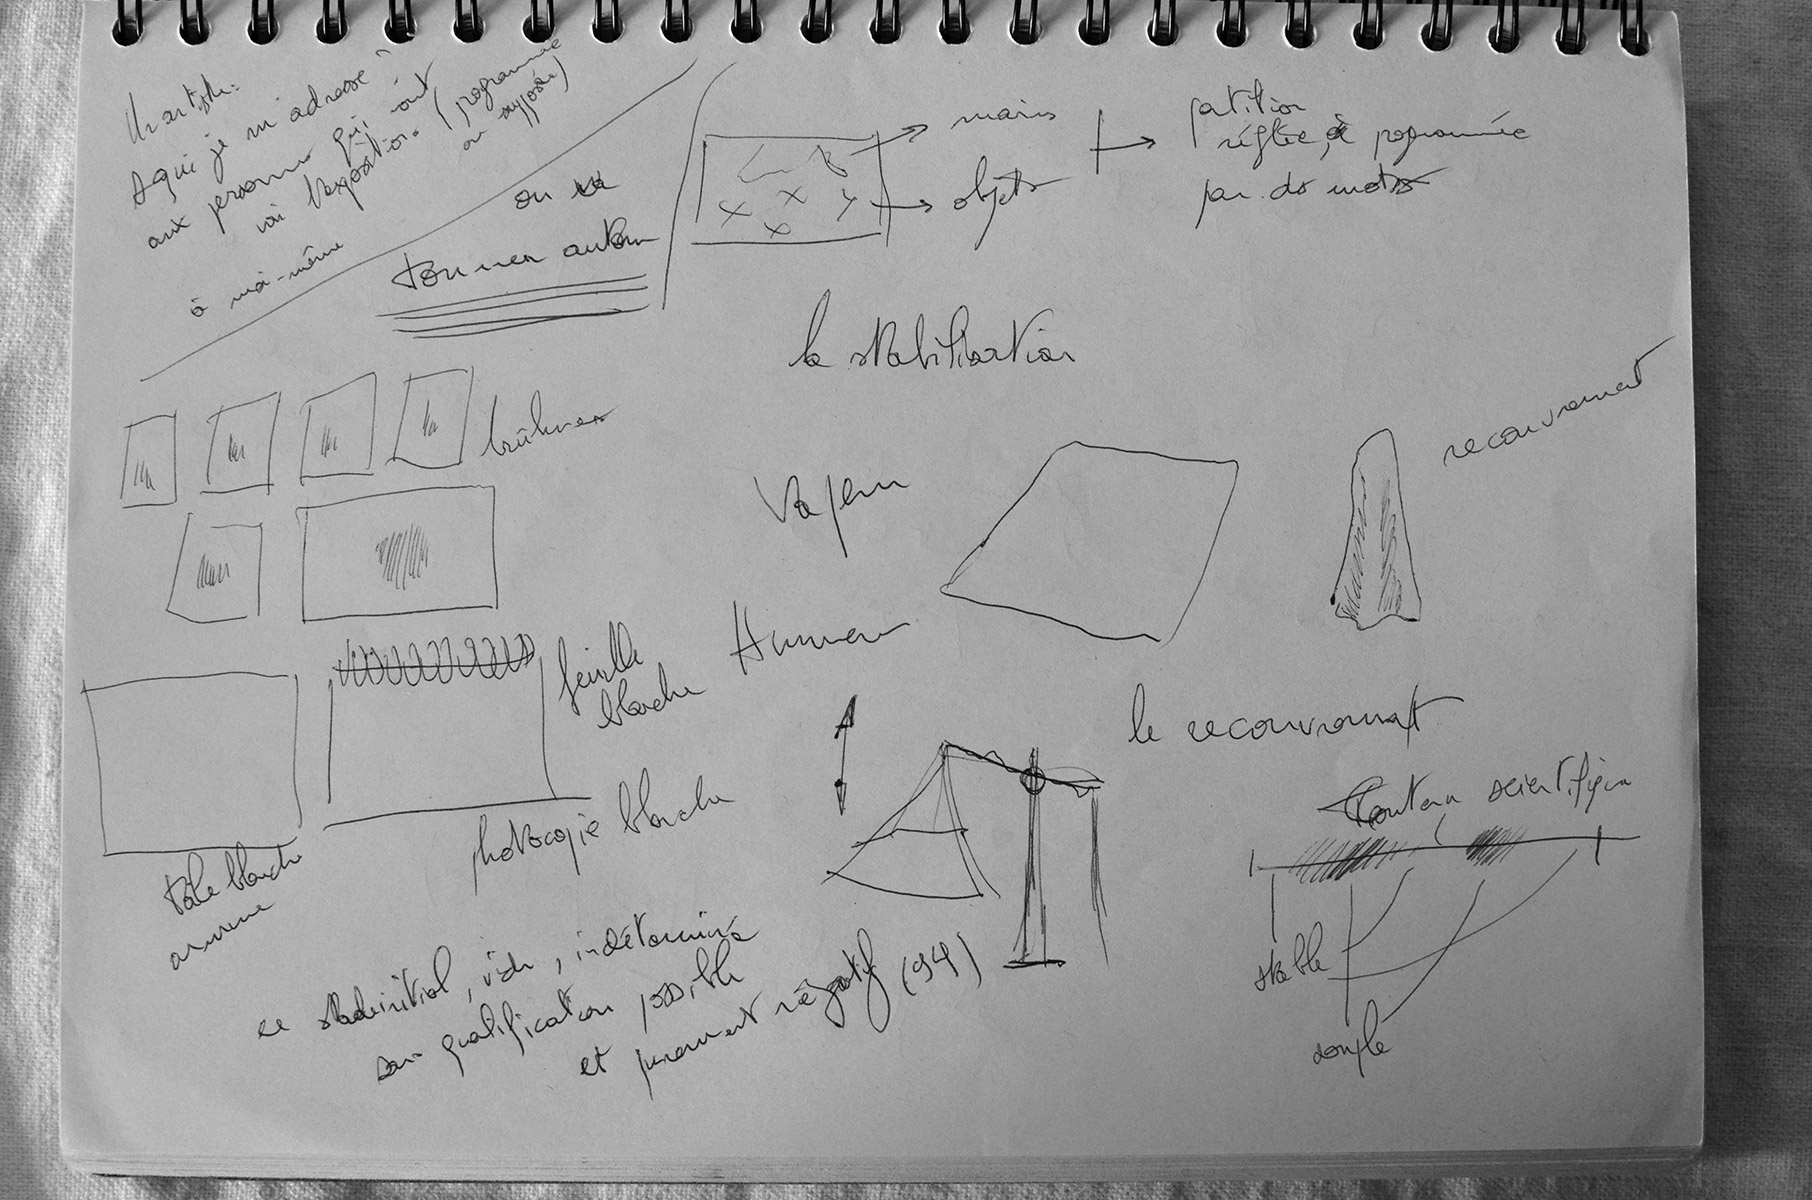 Un artiste.
A qui je m'adresse ?
aux personnes qui vont
voir l'exposition. (programme
ou supposée)
à moi-même
on va
tourner autour
mains
objets
partition
réglée, programmée
par des mots
la stabilisation
brûlures
Vapeur
recouvrement
Humeur
feuille
blanche
le recouvrement
photocopie blanche
toile blanche
Contenu scientifique
stable
souple
ce stade initial, vide, indéterminé
sans qualification possible
et purement négatif (94)